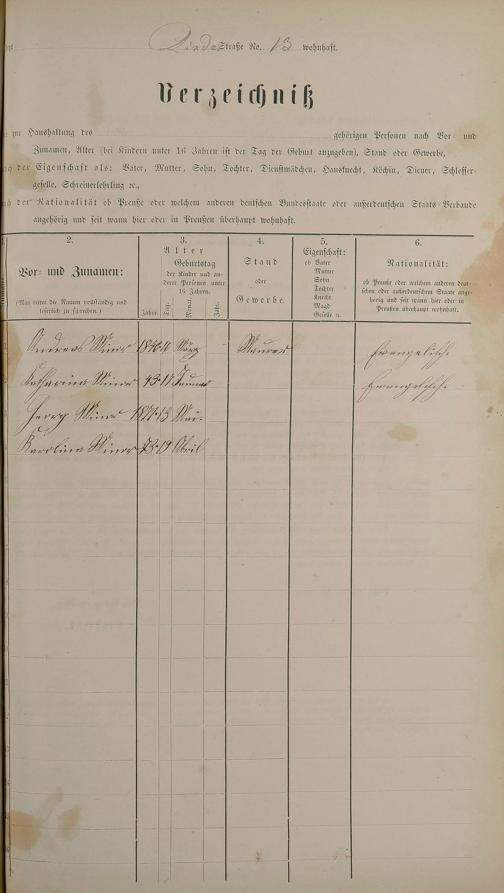 Straße No. 13 wohnhaft.
Verzeichniß
zur Haushaltung des gehörigen Personen nach Vor- und
Zunamen, Alter (bei Kindern unter 16 Jahren ist der Tag der Geburt anzugeben), Stand oder Gewerbe,
der Eigenschaft als: Vater, Mutter, Sohn, Tochter, Dienstmädchen, Hausknecht, Köchin, Diener, Schlosser-
geselle, Schreinerlehrling ꝛc.,
der Nationalität ob Preuße oder welchem anderen deutschen Bundesstaate oder außerdeutschen Staats-Verbande
angehörig und seit wann hier oder in Preußen überhaupt wohnhaft.
2.
Vor- und Zunamen:
(Man bittet die Namen vollständig und
leserlich zu schreiben.)
3.
Alter
Geburtstag
der Kinder und an-
derer Personen unter
16 Jahren.
Jahre. Tag. Monat. Jahr.
4.
Stand
oder
Gewerbe.
5.
Eigenschaft:
ob Vater
Mutter
Sohn
Tochter
Knecht
Magd
Geselle ꝛc.
6.
Nationalität:
ob Preuße oder welchem anderen deut-
schen oder außerdeutschen Staate ange-
hörig und seit wann hier oder in
Preußen überhaupt wohnhaft.
Andreas März Maurer Evangelisch
Katharina Evangelisch
Mai
Karolina April